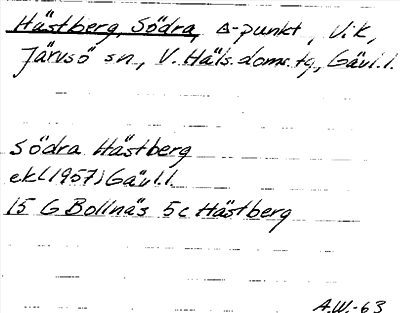 Hästberg, Södra, Δ-punkt, Vik,
Järvsö sn, V. Häls. doms. tg, Gävl.l.
Södra Hästberg
ek (1957) Gävl.l.
15 G Bollnäs 5c Hästberg
A.W.-63